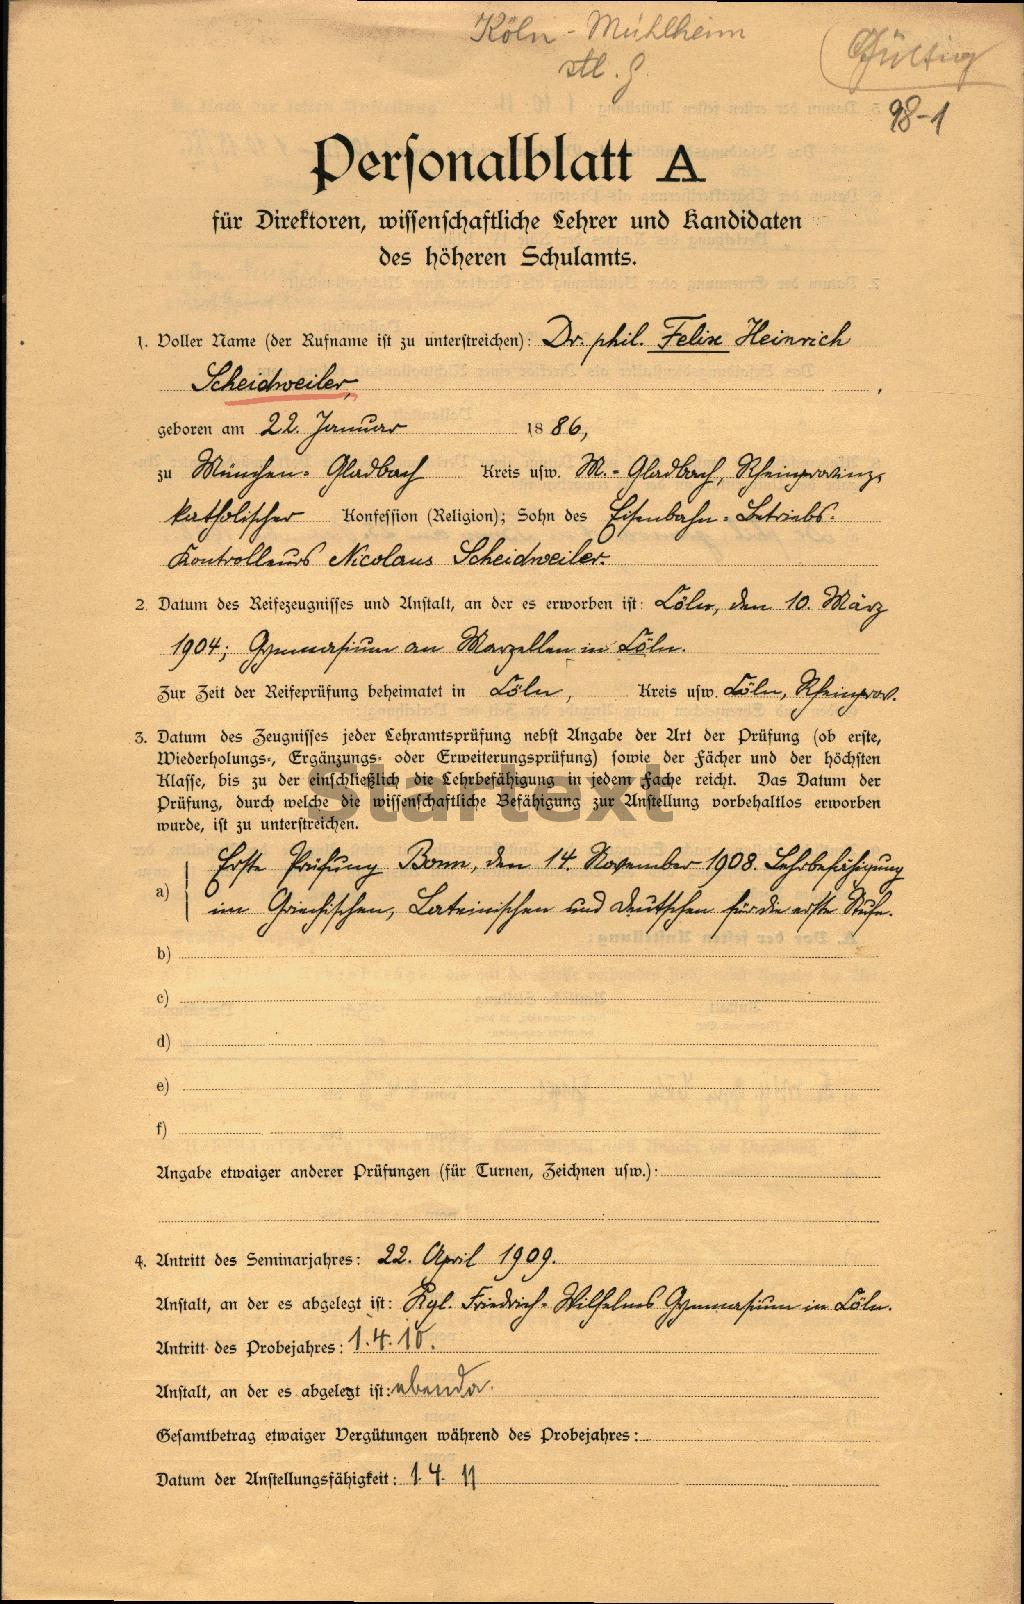 Köln - Mühlheim
stl. G.
Gültig
98-1
Personalblatt A
für Direktoren, wissenschaftliche Lehrer und Kandidaten
des höheren Schulamts.
1. Voller Name (der Rufname ist zu unterstreichen): Dr. phil. Felix Heinrich
Scheidweiler,
geboren am 22. Januar 1886,
zu München-Gladbach Kreis usw. M.-Gladbach, Rheinprovinz,
katholischer Konfession (Religion); Sohn des Eisenbahn-Betriebs-
Kontrolleurs Nicolaus Scheidweiler.
2. Datum des Reifezeugnisses und Anstalt, an der es erworben ist: Cöln, den 10. März
1904; Gymnasium an Marzellen in Cöln.
Zur Zeit der Reifeprüfung beheimatet in Cöln, Kreis usw. Cöln, Rheinprov.
3. Datum des Zeugnisses jeder Lehramtsprüfung nebst Angabe der Art der Prüfung (ob erste,
Wiederholungs-, Ergänzungs- oder Erweiterungsprüfung) sowie der Fächer und der höchsten
Klasse, bis zu der einschließlich die Lehrbefähigung in jedem Fache reicht. Das Datum der
Prüfung, durch welche die wissenschaftliche Befähigung zur Anstellung vorbehaltlos erworben
wurde, ist zu unterstreichen.
Startext
a) Erste Prüfung Bonn, den 14. November 1908. Lehrbefähigung
im Griechischen, Lateinischen und Deutschen für die erste Stufe.
b)
c)
d)
e)
f)
Angabe etwaiger anderer Prüfungen (für Turnen, Zeichnen usw.):
4. Antritt des Seminarjahres: 22. April 1909.
Anstalt, an der es abgelegt ist: Kgl. Friedrich-Wilhelms Gymnasium in Cöln.
Antritt des Probejahres: 1.4.10.
Anstalt, an der es abgelegt ist: ebenda.
Gesamtbetrag etwaiger Vergütungen während des Probejahres:
Datum der Anstellungsfähigkeit: 1.4.11